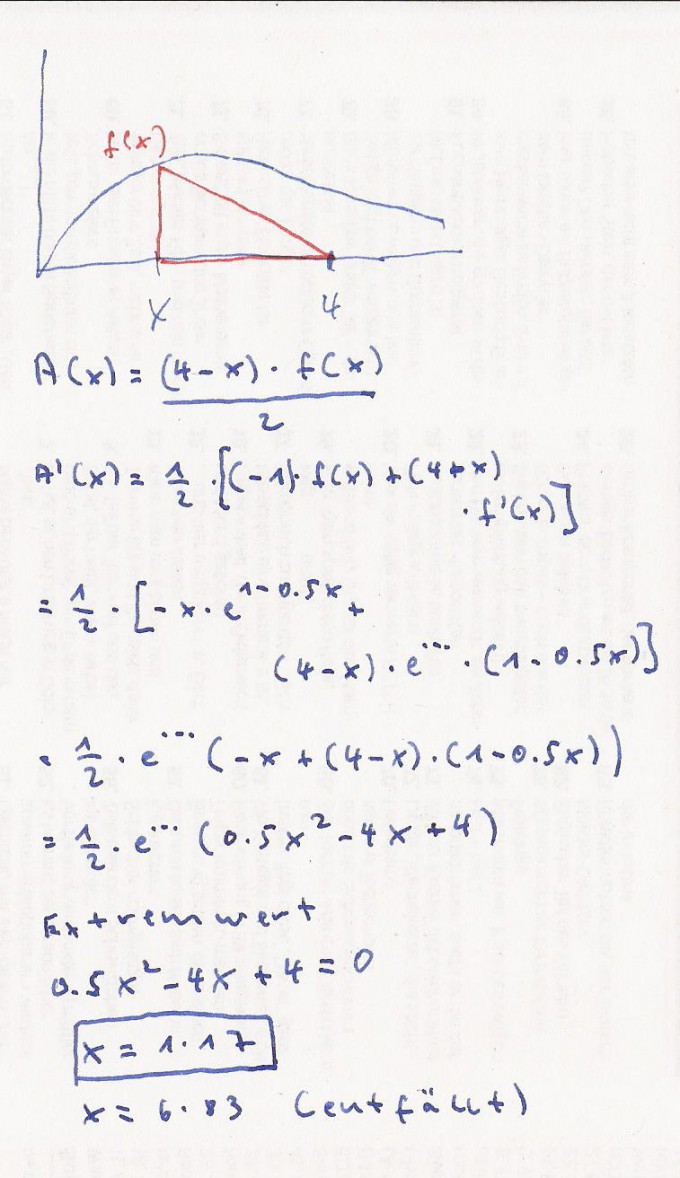 f(x)
x 4
A(x) = (4-x) · f(x)
2
A'(x) = 1/2 · [(-1) · f(x) + (4+x)
· f'(x)]
= 1/2 · [-x · e^1-0.5x +
(4-x) · e^... · (1-0.5x)]
= 1/2 · e^... (-x + (4-x) · (1-0.5x))
= 1/2 · e^... (0.5x² - 4x + 4)
Extremwert
0.5x² - 4x + 4 = 0
x = 1.17
x = 6.83 (entfällt)